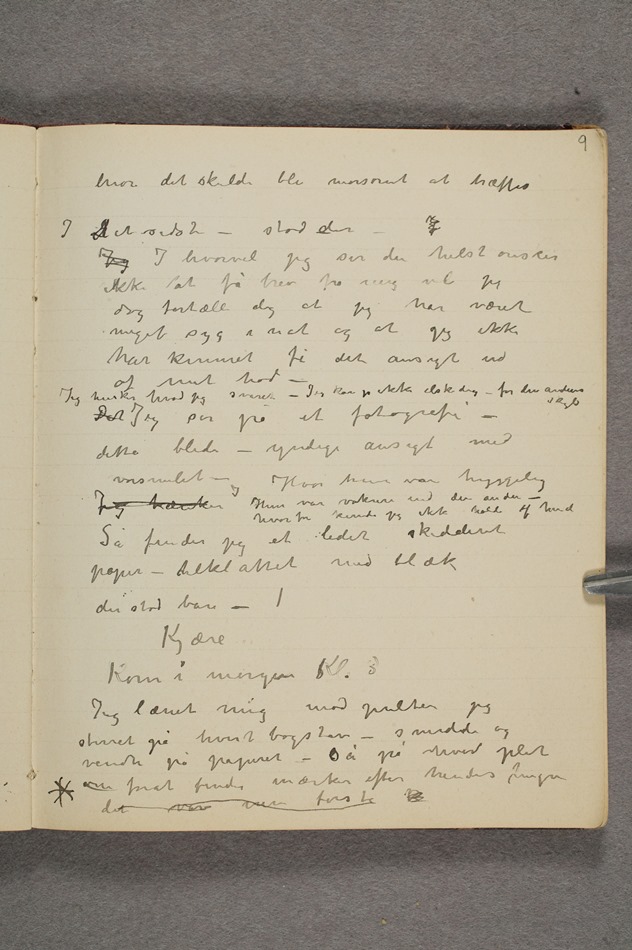 9
hvor det skulde bli morsomt at træffes
I det sidste – stod der –
I hvorvel jeg ser du helst ønsker
ikke at få brev fra mig vil jeg
dog fortælle dig at jeg har været
meget syg i nat og at jeg ikke
har kunnet få det ansigt ud
af mit hod –
Jeg husker hvad jeg svarte – Jeg kan jo ikke elske dig – for den andens skyld
Jeg ser på et fotografi –
dette blede – yndige ansigt med
vorsmilet – og Hvor hun var hyggelig
Jeg tænker Hun var vakrere end den anden –
hvorfor kunde jeg ikke holde af hende
Så finder jeg et lidet skiddent
papir – tilklattet med blæk
der stod bare –
Kjære
Kom i morgen Kl. 3
Jeg lænet mig mod pulten jeg
stirret på hvert bogstav – snudde og
vendte på papiret – Så på hver plet
om forat finde mærker efter hendes finger
det var min første